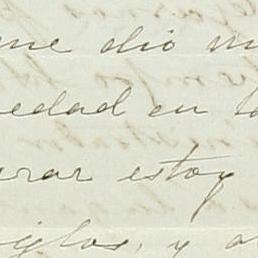 me dio m
edad en l
rar estoy
iglos, y a